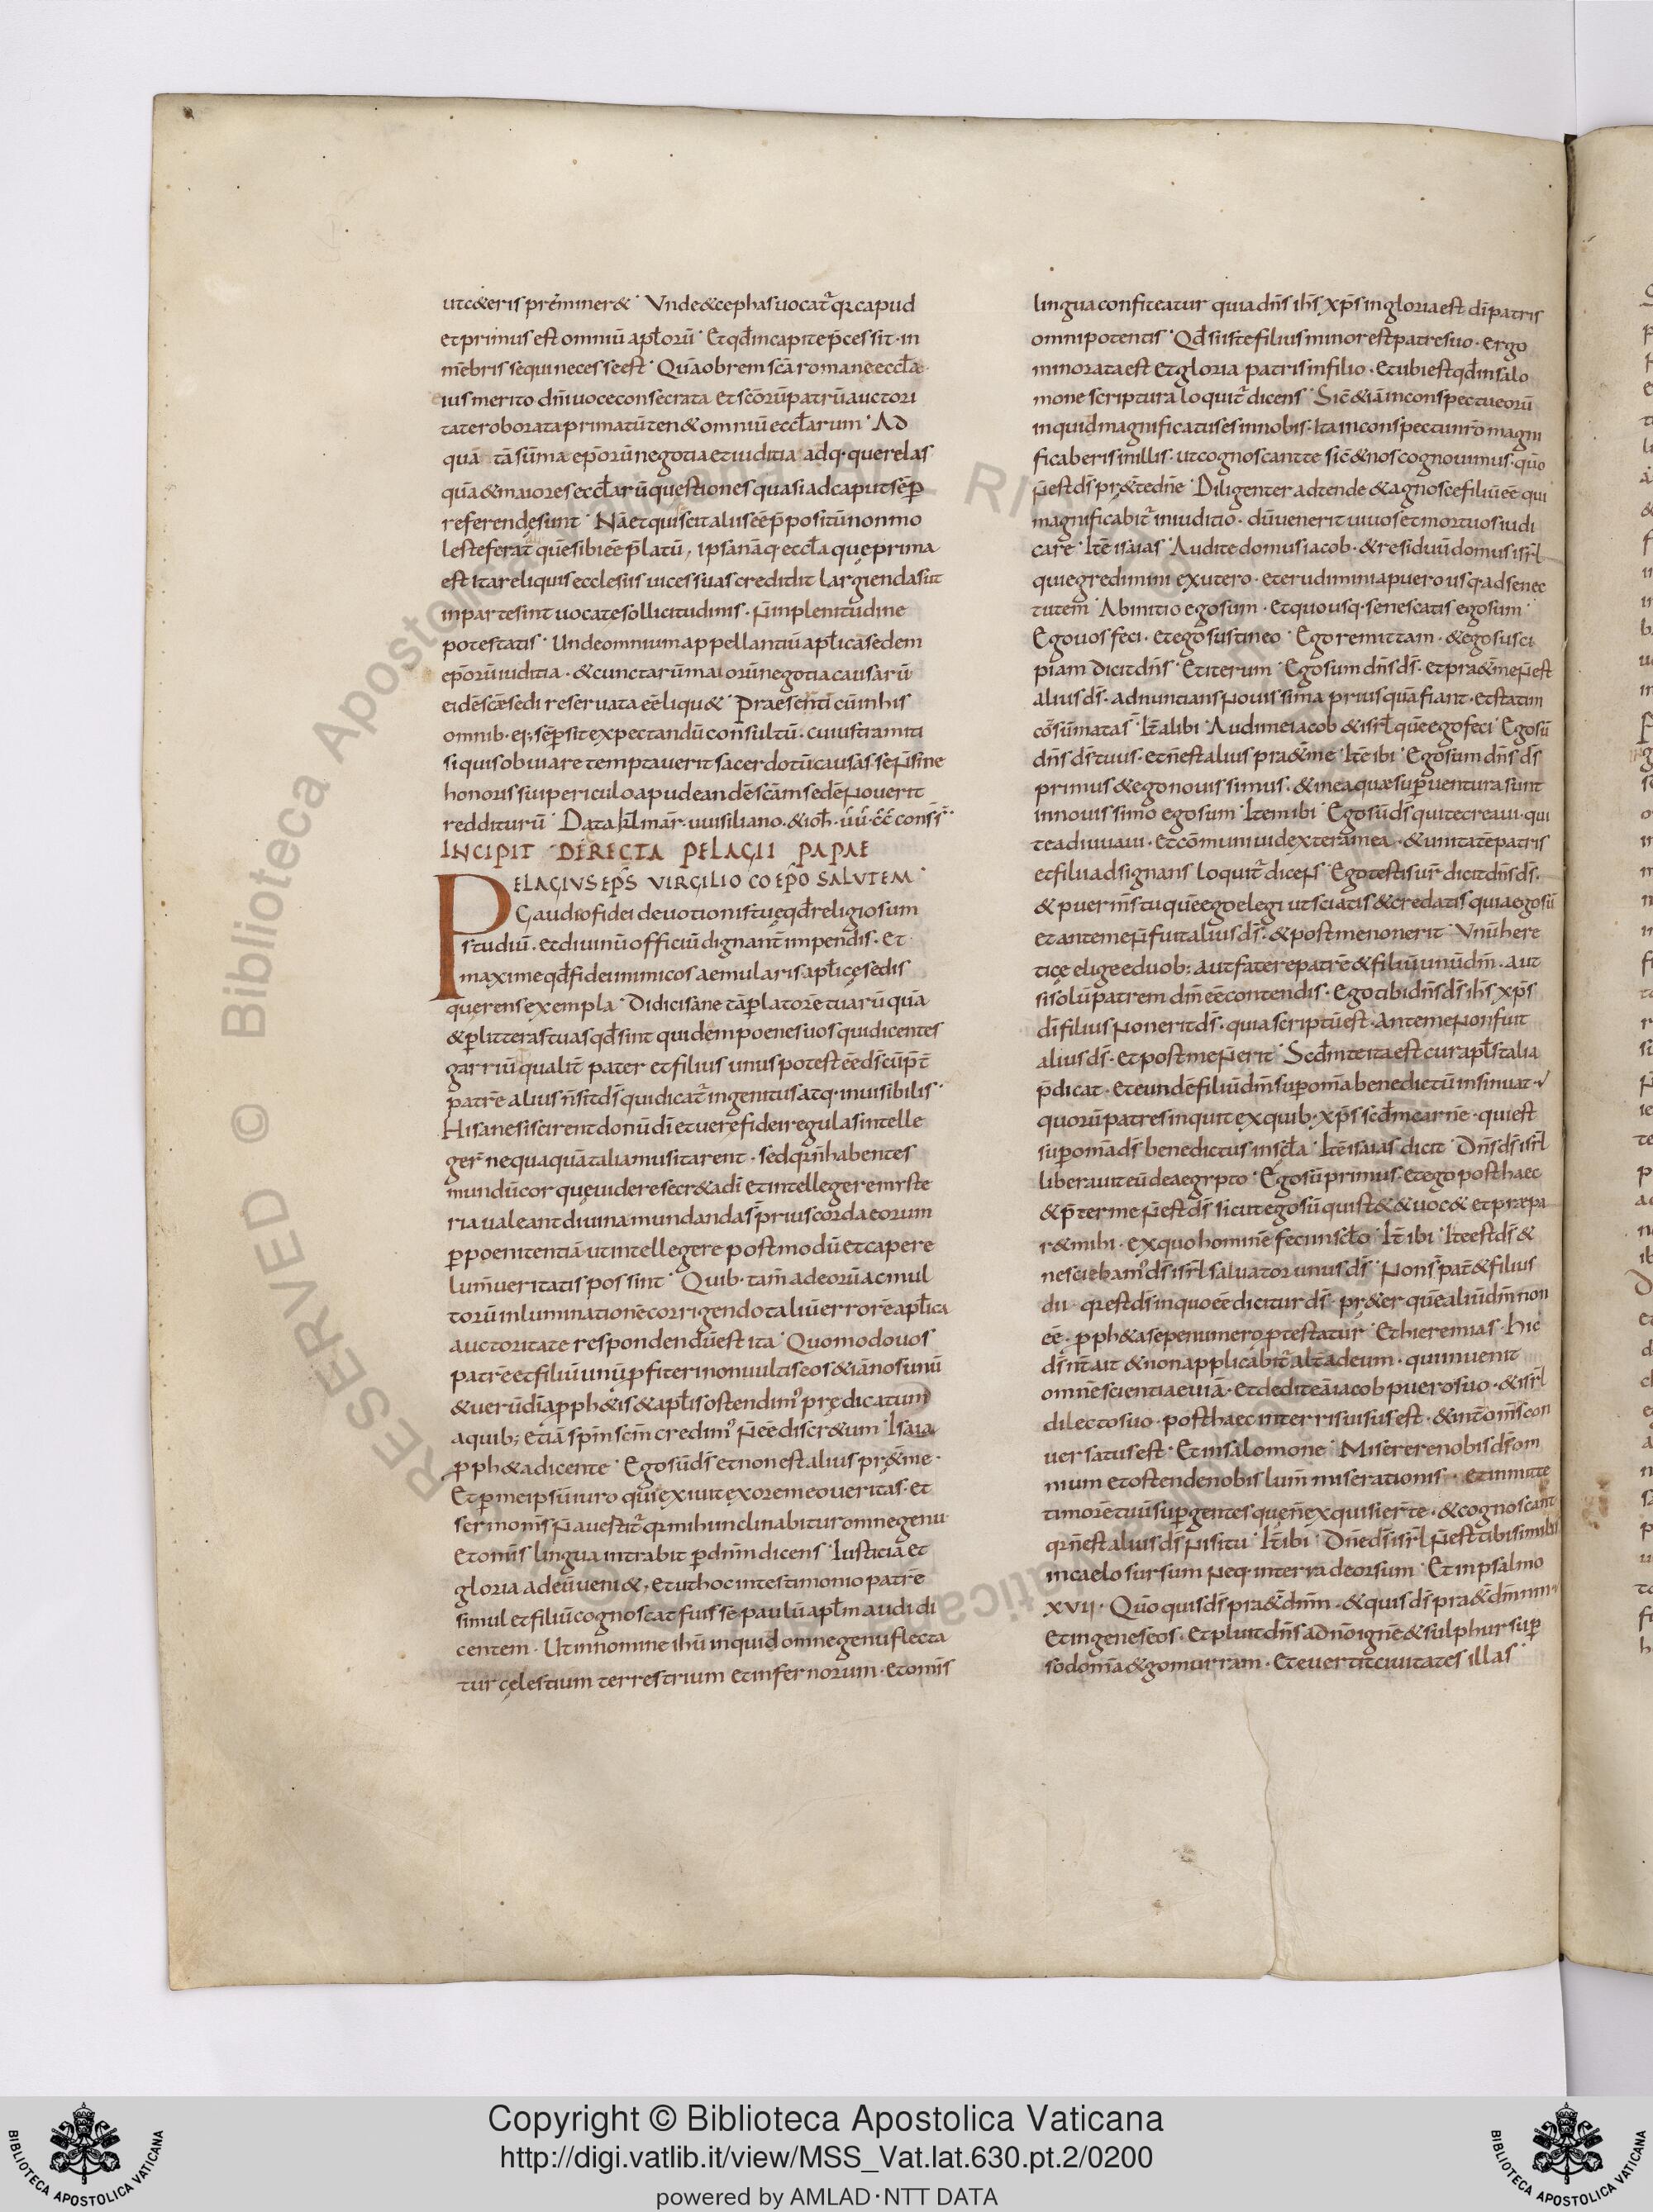 utc&eris pręminer& · Vnde&cephasuocat᷑qꝛcapud
etprimus est omniū aplorū · Etqđincapitep̄cessit · in
mēbris sequi necesseest · Quāobrem scā romaneeccła
ius merito dn̄iuoceconsecrata etscōrūpatrūauctori
tateroborataprimatūten&omniū eccłarum · Ad
quā tāsūma ep̄orūnegotiaetiuditia adq· querelas
quā&maioreseccłarūquestiones quasiadcaputsēꝑ
referendęsunt · Nāetquiscitaliiseē p̄positūnonmo
lesteferat quēsibieē p̄latū, ipsanāq· eccła queprima
est itareliquisecclesiis uicessuascredidit largiendasut
inpartesint uocatęsollicitudinis · ñinplenitudine
potestatis · Undeomniumappellantiū aplicāsedem
ep̄orūiuditia · &cunctarūmaiorūnegotiacausarū
eidēscęsedi reseruata eēliqu& · Praesen̄ti eūinhis
omnib· ei; sēꝑsitexpectandū consultū · cuiustramiti
siquisobuiare temptauerit sacerdotūcausas · señsine
honorissuipericuloapudeandēscāmsedēnouerit
redditurū · Data kł mar̄ · uuisiliano · &ioħ · ūū · cc̄ cons̄s̄
INCIPIT DIRECTA PELAGII PAPAE
PELAGIUS EP̄S VIRGILIO COEP̄O SALUTEM
Gaudeofidei deuotionistuęqđreligiosum
studiū · etdiuinūofficiūdignant̄ impendis · Et
maximeqđfideiinimicos aemularis aplicęsedis
querensexempla · Didicisane tāꝑlatorētuarū quā
&ꝑlitteras tuas qđsint quidem poenesuos quidicentes
garriūt qualit̄ pater etfilius unus potesteēd̄scūp̄t̄
patrē alius n̄sitds̄ quidicat᷑ingenitusatq· inuisibilis
Hi sanesiscirentdonūdī etuerefideiregulasintelle
ger̄ nequaquātaliamusitarent · sedqꝛn̄habentes
mundūcor queuideresecr&adī etintellegeremyste
riaualeantdiuina mundandas̄ priuscordaeorum
ꝑpoenitentiā utintellegere postmodū etcapere
lum̄ueritatis possint · Quib· tam̄ adeorūacmul
torū inluminationēcorrigendotaliūerrorē aplica
auctoritate respondendūest ita · Quomodouos
patrē etfiliū unūꝓfiterinonuultis eos&iānosunū
&uerūdīaꝓph&is&aplisostendim᷒ prędicatum
aquib; etiā sp̄m scm̄ credim᷒ ñeēdiscr&um · Isaia
ꝓph&adicente · Egosūds̄ etnonestalius pr&me ·
Etꝑmeipsūiuro quiexiuitęxoremeoueritas · et
sermonis̄ ñauestit᷑qꝛmihiinclinabituromnegenu
etomīs lingua intrabit ꝑdnm̄dicens · Iusticiā et
gloria adeūueni&, etuthocintestimonio patrē
simul etfiliūcognoscatfuisse paulūaplm̄audidi
centem · Ut innomine ihū inquid omnegenuflecta
turcęlestium terrestrium etinfernorum · etomīs
linguaconfiteatur quiadn̄s ihs̄ xp̄s ingloriaest dīpatris
omnipotentis · Qđsiistefilius minor estpatresuo · ergo
minorataest etgloria patrisinfilio · etubiestqđinsalo
monescriptura loquit᷑ dicens · Sic̄&iāinconspectueorū
inquidmagnificatusesinnobis · Itainconspectunr̄o magni
ficaberisinillis · utcognoscantte sic̄&noscognouimus · qūo
ñestds̄ pr&tedn̄e · Diligenter adtende &agnoscefiliūeē qui
magnificabit᷑iniuditio · dūuenerit uiuosetmortuosiudi
care · Itē isaias · Audite domusiacob · &residuūdomusisrł
quiegredimini exutero · eterudiminiapuero usq·adsenec
tutem · Abinitio egosum · Etquousq· senescatis egosum ·
Egouosfeci · etegosustineo · Egoremittam · &egosusci
piam dicitdn̄s · Etiterum · Egosum dn̄sds̄ · etpra&meñest
aliusds̄ · adnuntians nouissima priusquāfiant · etstatim
cōsūmatas · It̄alibi · Audimeiacob &isrł quēegofeci · Egosū
dn̄s ds̄tuus · etn̄estalius pra&me · Itēibi · Egosum dn̄s ds̄
primus &egonouissimus · &ineaquęsuꝑuenturasunt
innouissimo egosum · Itemibi · Egosūds̄ quitecreaui · qui
teadiuuaui · etcōmuniuidexteramea · &unitatēpatris
etfiliiadsignans loquit᷑ dicens · Egotestisur̄ dicitdn̄sds̄ ·
&puerm̄s tuquēegoelegi utsciatis&credatis quiaegosū
etantemeñfuitaliusds̄ · &postmenonerit · Vnūhere
ticę eligeeduob: autfaterepatrē&filiūunūdnm̄ · aut
sisolūpatrem dnm̄ eēcontendis · Egotibidn̄sds̄ ihs̄ xp̄s
dīfilius noneritds̄ · quiascriptūest · Antemenonfuit
aliusds̄ · etpostmeñerit · Scdm̄teitaest curapłstalia
p̄dicat · eteundēfiliūdnm̄ suꝑomīa benedictūinsinuat ·
quorūpatresinquit exquib· xp̄s scdm̄carnē · quiest
suꝑomīads̄ benedictus inscła · Itēisaias dicit · Dn̄sds̄ isrł
liberauiteūdeaegypto · Egosū primus · etego posthaec
&p̄terme ñestds̄ sicutegosū quist&&uoc& etpraepa
r&mihi · exquohominē feciinscło · It̄ ibi · Iteestds̄ &
nesciebam᷒ ds̄ isrł saluator unusds̄ · Nons̄ pat̄&filius
dii · qꝛestds̄ inquoeē dicitur ds̄ · pr&er quēaliūdnm̄ non
eē · ꝓph&asepenumeroꝓtestatur · Ethieremias · Hic
ds̄ nt̄ait &nonapplicabit᷑ alt̄adeum · quiinuenit
omnēscientiaeuiā · etdediteāiacob puerosuo · &isrł
dilectosuo · posthaecinterrisuisusest · &int̄ omīscon
uersatusest · Etinsalomone · Misererenobisds̄om
nium etostendenobis lum̄ miserationis · etinmitte
timorētuūsuꝑgentesquen̄exquisierte · &cognoscant
qꝛn̄estaliusds̄ nisitu · It̄ibi · Dn̄eds̄isrł ñesttibisimilis
incaelo sursum neq·interradeorsum · Etinpsalmo
xvii · Qūo quisds̄ pra&dnm̄ · &quisds̄ pra&dnm̄nrm̄
Etingeneseos · etpluitdn̄s adn̄oignē&sulphur suꝑ
sodomā&gomurram · Eteuertitciuitates illas
Copyright © Biblioteca Apostolica Vaticana
http://digi.vatlib.it/view/MSS_Vat.lat.630.pt.2/0200
powered by AMLAD·NTT DATA
BIBLIOTECA APOSTOLICA VATICANA
BIBLIOTECA APOSTOLICA VATICANA